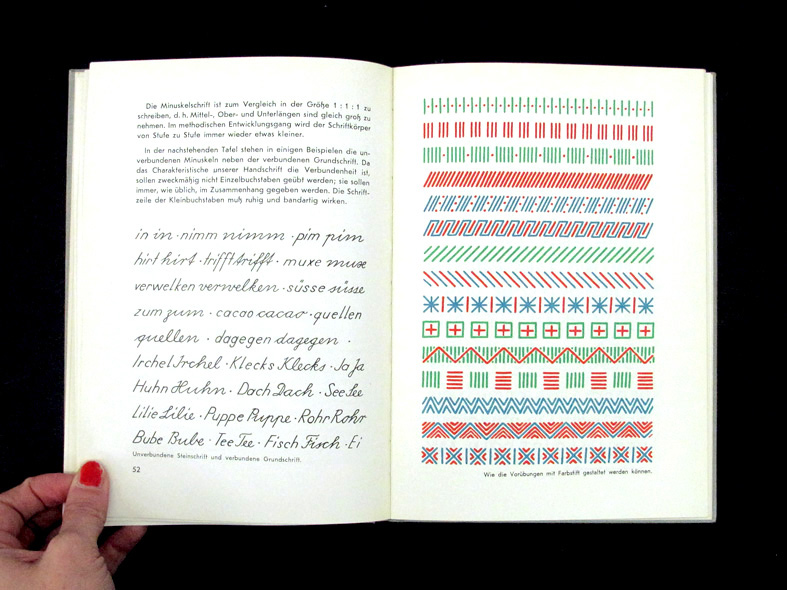 Die Minuskelschrift ist zum Vergleich in der Größe 1 : 1 : 1 zu
schreiben, d. h. Mittel-, Ober- und Unterlängen sind gleich groß zu
nehmen. Im methodischen Entwicklungsgang wird der Schriftkörper
von Stufe zu Stufe immer wieder etwas kleiner.
In der nachstehenden Tafel stehen in einigen Beispielen die un-
verbundenen Minuskeln neben der verbundenen Grundschrift. Da
das Charakteristische unserer Handschrift die Verbundenheit ist,
sollen zweckmäßig nicht Einzelbuchstaben geübt werden; sie sollen
immer, wie üblich, im Zusammenhang gegeben werden. Die Schrift-
zeile der Kleinbuchstaben muß ruhig und bandartig wirken.
in in · nimm nimm · pim pim
hirt hirt · trifft trifft · muxe muxe
verwelken verwelken · süsse süsse
zum zum · cacao cacao · quellen
quellen · dagegen dagegen ·
Irchel Irchel · Klecks Klecks · Ja Ja
Huhn Huhn · Dach Dach · See See
Lilie Lilie · Puppe Puppe · Rohr Rohr
Bube Bube · Tee Tee · Fisch Fisch · Ei
Unverbundene Steinschrift und verbundene Grundschrift.
52
Wie die Vorübungen mit Farbstift gestaltet werden können.